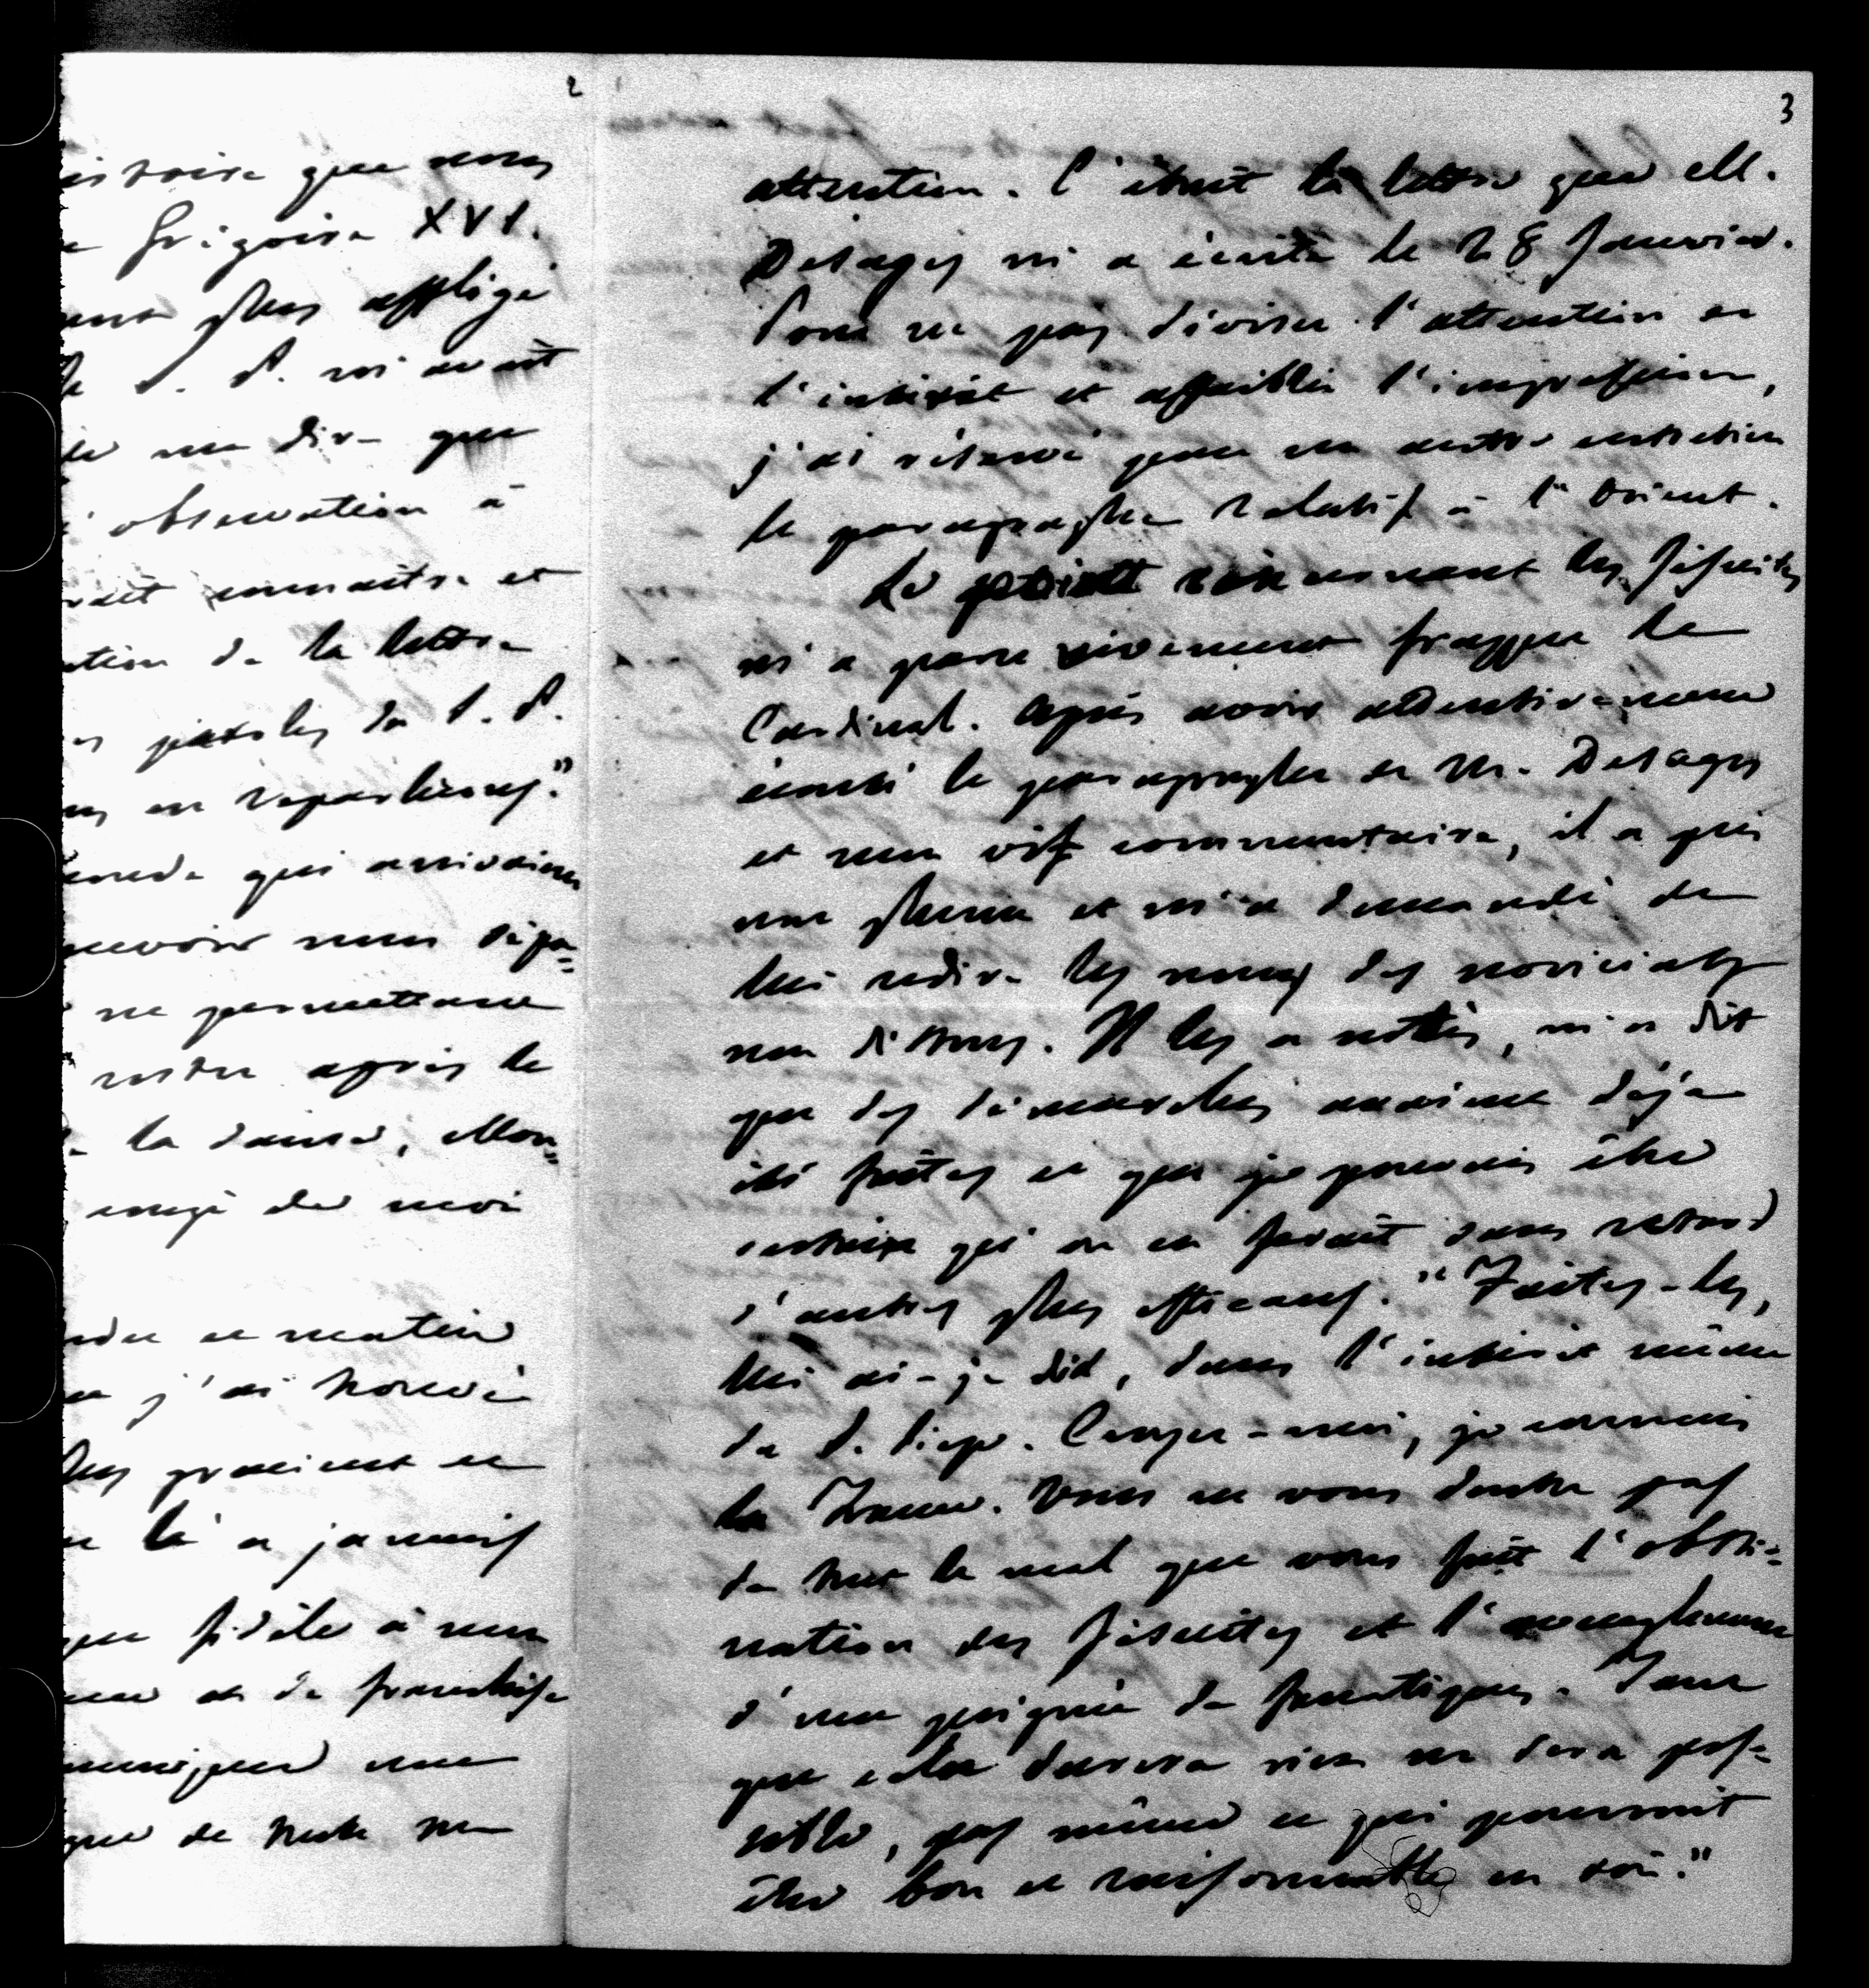 2
istoire que nous
Grégoire XVI.
plus affligé
S. P. m'avait
de me dire que
observation à
connaître et
ation de la lettre
paroles du S. P.
en reparlerons."
monde qui arrivaient
recevoir mon dépa=
ne permettant
rester après le
la danse, Mon=
congé de moi
ce matin
j'ai trouvé
plus gracieux et
là a jamais
que fidèle à mon
et de franchise
une
que de toute ma
3
attention. C'était la lettre que M.
Desages m'a écrite le 28 Janvier.
Pour ne pas diviser l'attention et
l'intérêt et affaiblir l'impression,
j'ai réservé pour un autre entretien
le paragraphe relatif à l'Orient.
Le point concernant les Jésuites
m'a paru vivement frapper le
Cardinal. Après avoir attentivement
écouté le paragraphe de M. Desages
et mon vif commentaire, il a pris
une plume et m'a demandé de
lui redire les noms des noviciats
non dissous. Il les a notés, m'a dit
que des démarches avaient déjà
été faites et que je pouvais être
certain qu'on en ferait sans retard
d'autres plus efficaces. "Faites-les,
lui ai-je dit, dans l'intérêt même
du S. Siège. Croyez-moi, je connais
la France. Vous ne vous doutez pas
de tout le mal que vous fait l'obsti=
nation des Jésuites et l'aveuglement
d'une poignée de fanatiques. Tant
que cela durera rien ne sera pos=
sible, pas même ce qui pourrait
être bon et raisonnable en soi."